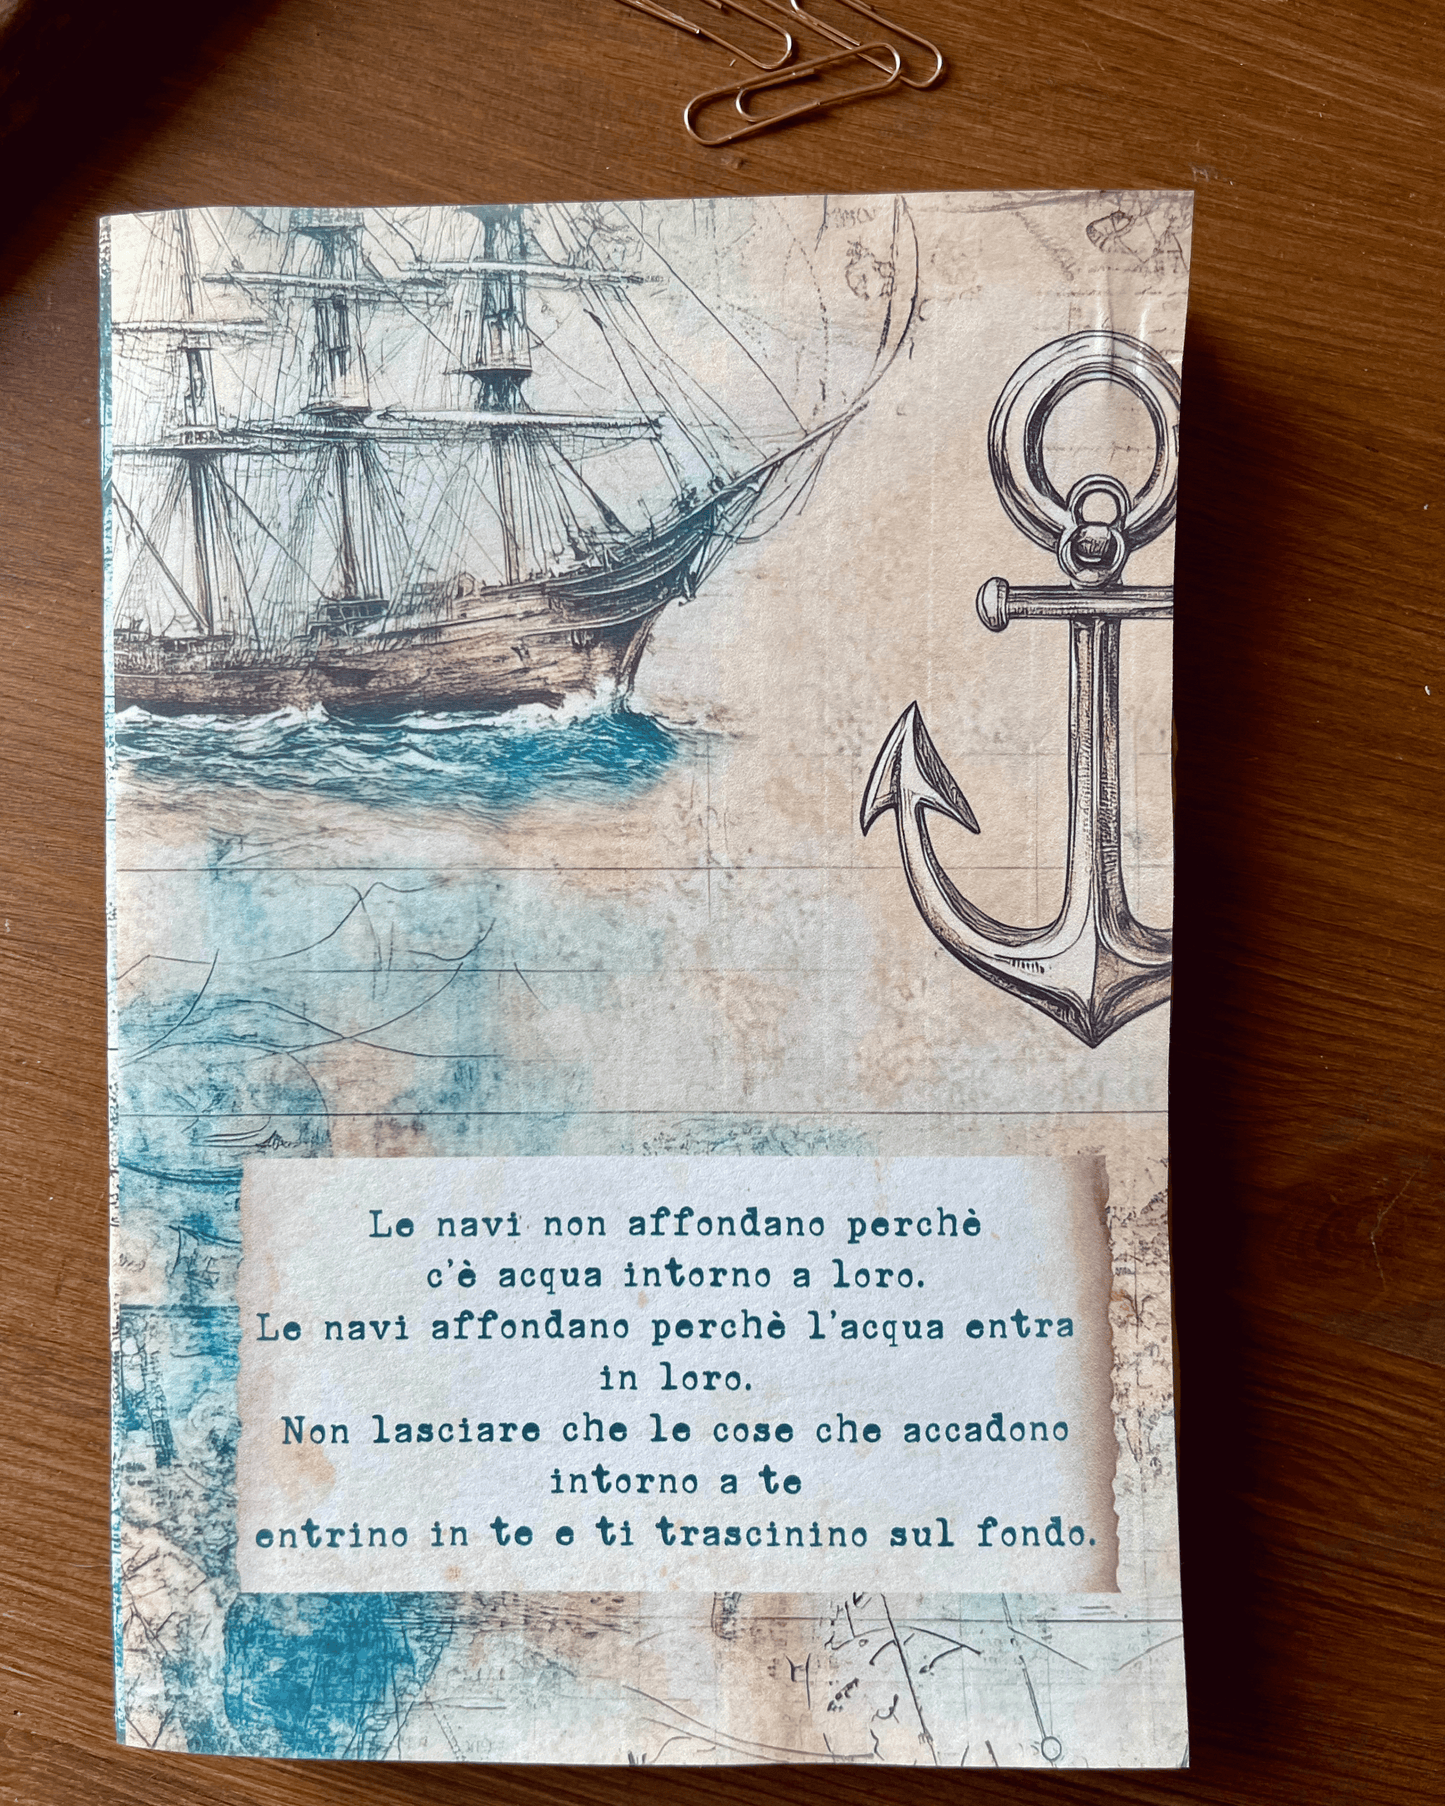 Le navi non affondano perchè
c'è acqua intorno a loro.
Le navi affondano perchè l'acqua entra
in loro.
Non lasciare che le cose che accadono
intorno a te
entrino in te e ti trascinino sul fondo.